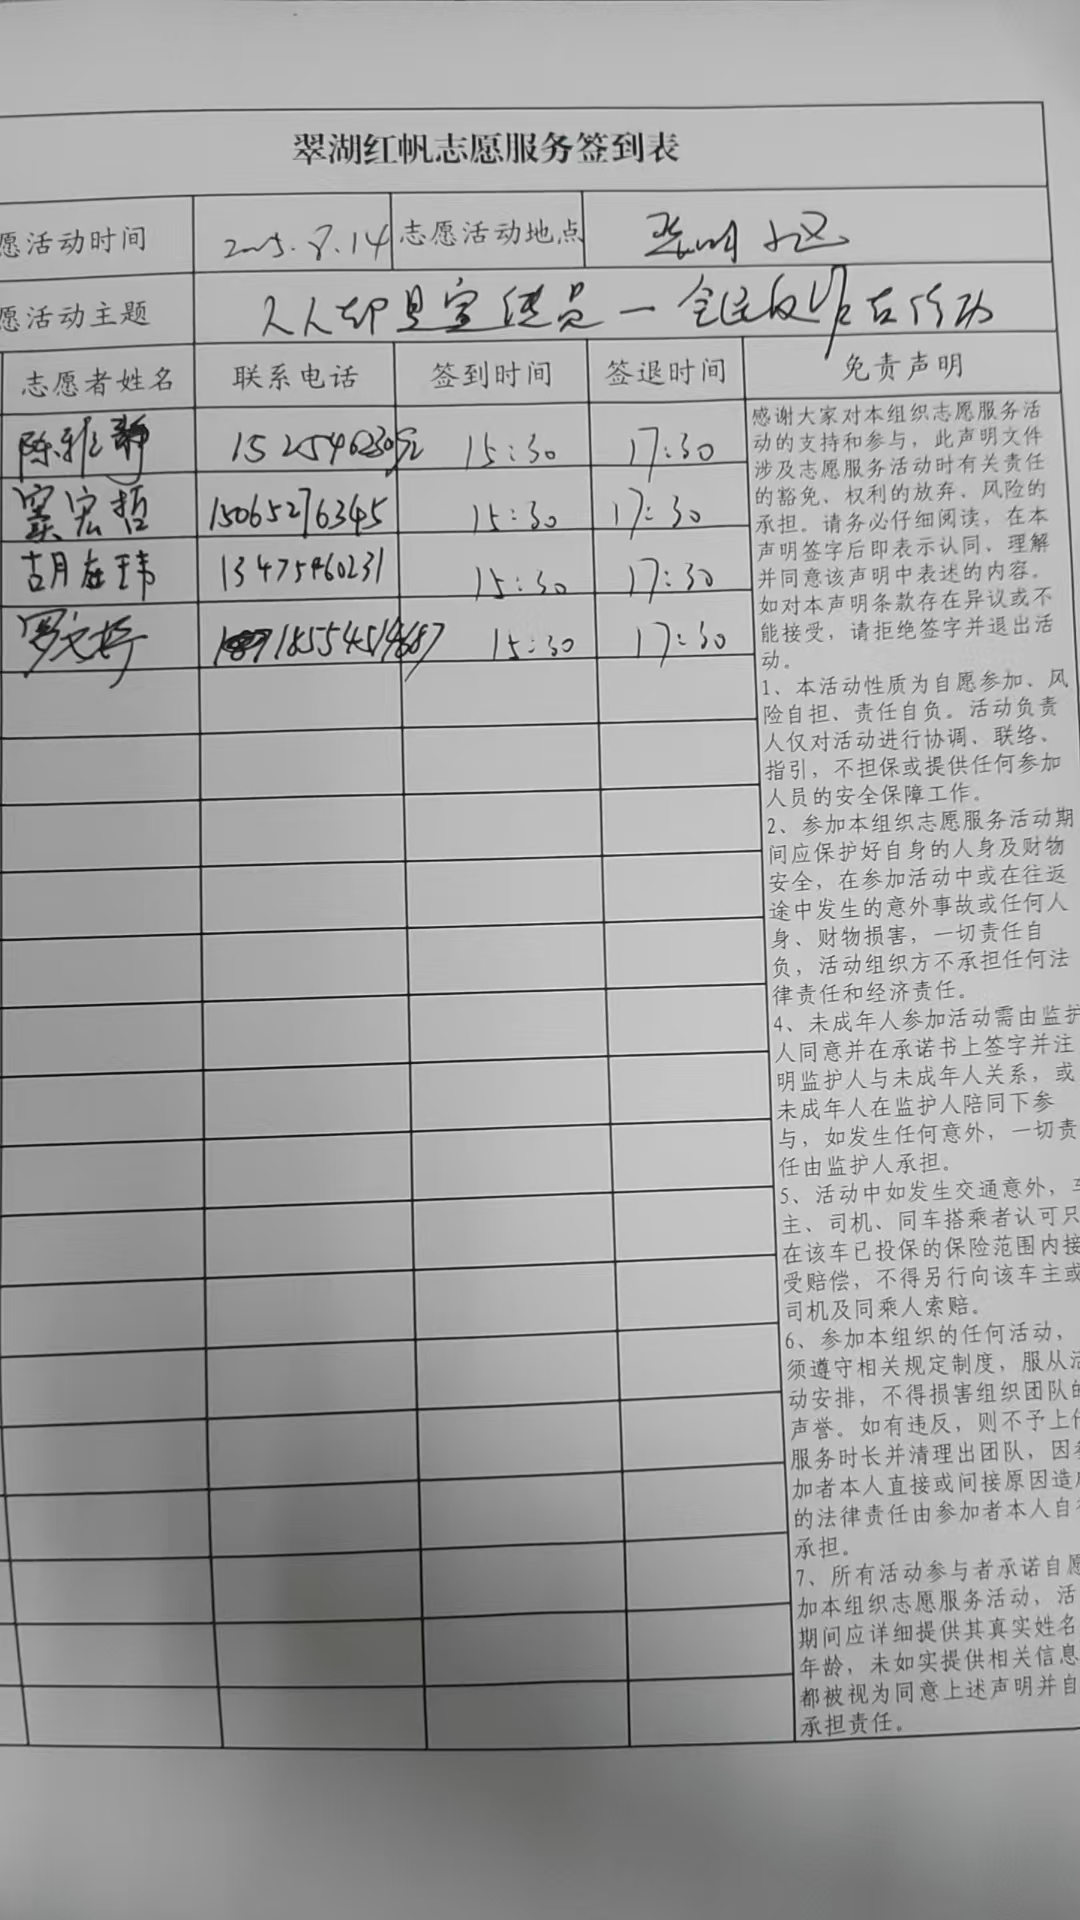 翠湖红帆志愿服务签到表
愿活动时间 2025.8.14 志愿活动地点 小区
愿活动主题 人人都是宣传员一全民反诈在行动
志愿者姓名 联系电话 签到时间 签退时间 免责声明
陈雅静 15:30 17:30
窦宏哲 15065276345 15:30 17:30
胡在玮 13475460231 15:30 17:30
罗文婷 18554519687 15:30 17:30
感谢大家对本组织志愿服务活
动的支持和参与，此声明文件
涉及志愿服务活动时有关责任
的豁免、权利的放弃、风险的
承担。请务必仔细阅读，在本
声明签字后即表示认同、理解
并同意该声明中表述的内容。
如对本声明条款存在异议或不
能接受，请拒绝签字并退出活
动。
1、本活动性质为自愿参加、风
险自担、责任自负。活动负责
人仅对活动进行协调、联络、
指引，不担保或提供任何参加
人员的安全保障工作。
2、参加本组织志愿服务活动期
间应保护好自身的人身及财物
安全，在参加活动中或在往返
途中发生的意外事故或任何人
身、财物损害，一切责任自
负，活动组织方不承担任何法
律责任和经济责任。
4、未成年人参加活动需由监护
人同意并在承诺书上签字并注
明监护人与未成年人关系，或
未成年人在监护人陪同下参
与，如发生任何意外，一切责
任由监护人承担。
5、活动中如发生交通意外，车
主、司机、同车搭乘者认可只
在该车已投保的保险范围内接
受赔偿，不得另行向该车主或
司机及同乘人索赔。
6、参加本组织的任何活动，
须遵守相关规定制度，服从活
动安排，不得损害组织团队的
声誉。如有违反，则不予上传
服务时长并清理出团队，因参
加者本人直接或间接原因造成
的法律责任由参加者本人自行
承担。
7、所有活动参与者承诺自愿
加本组织志愿服务活动，活
期间应详细提供其真实姓名
年龄，未如实提供相关信息
都被视为同意上述声明并自
承担责任。